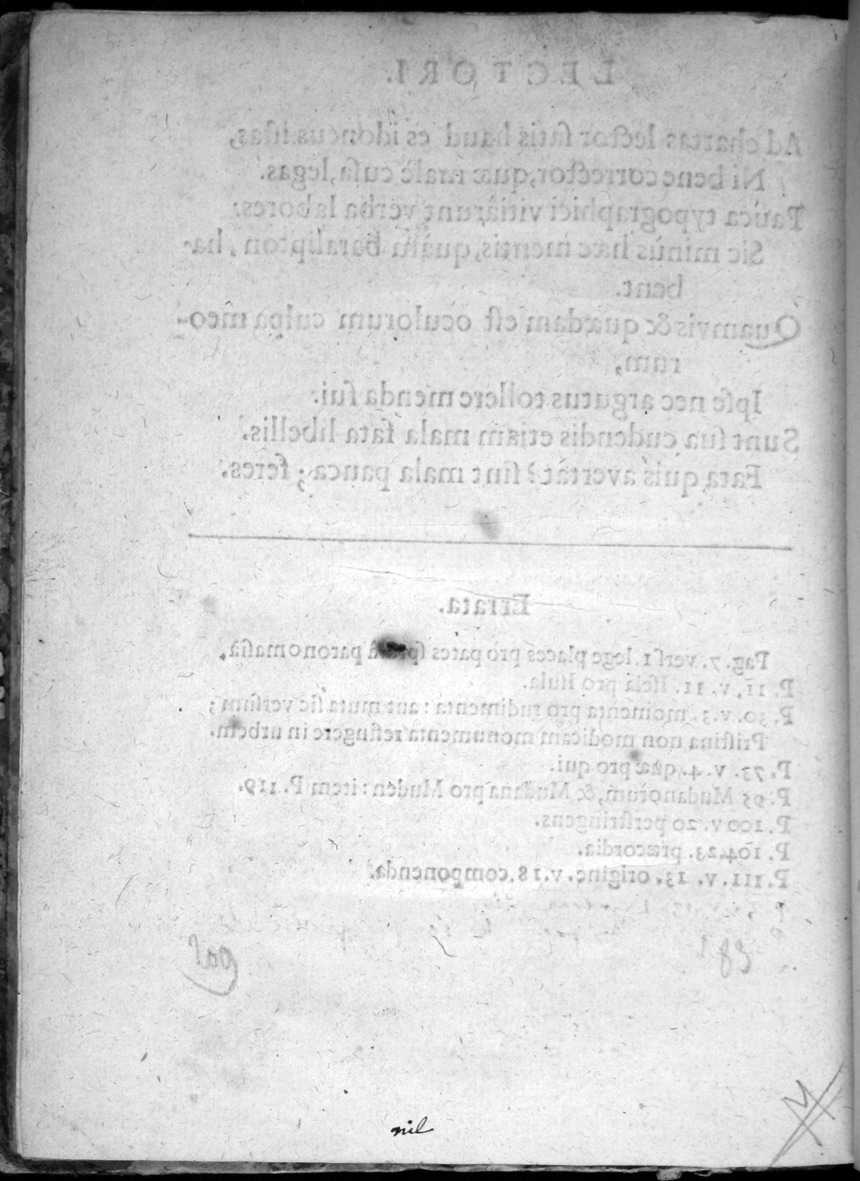 LECTORI.
Ad chartas lector satis haud es idoneus istas,
Ni bene corrector, quæ male cusa, legas.
Pauca typographici vitiârunt verba labores:
Sic minùs hæc mentis, quàm baralipton, ha-
bent.
Quamvis & quædam est oculorum culpa meo-
rum,
Ipse nec argutus tollere menda sui.
Sunt sua cudendis etiam mala fata libellis.
Fata quis avertat? sint mala pauca; feres.
Errata.
Pag. 7. vers 1. lege places pro pates paronomasiâ,
P. 11, v. 11. pro Isula.
P. 30. v. 3. momenta pro rudimenta: aut muta sic versum;
Pristina non modicam monumenta refingere in urbem.
P. 73. v. 4. quæ pro qui.
P. 95 Mudanorum, & Mudana pro Muden: item P. 119.
P. 100 v. 20 perstringens.
P. 104. 23. præcordia.
P. 111. v. 13. origine. v. 18. componenda.
nil